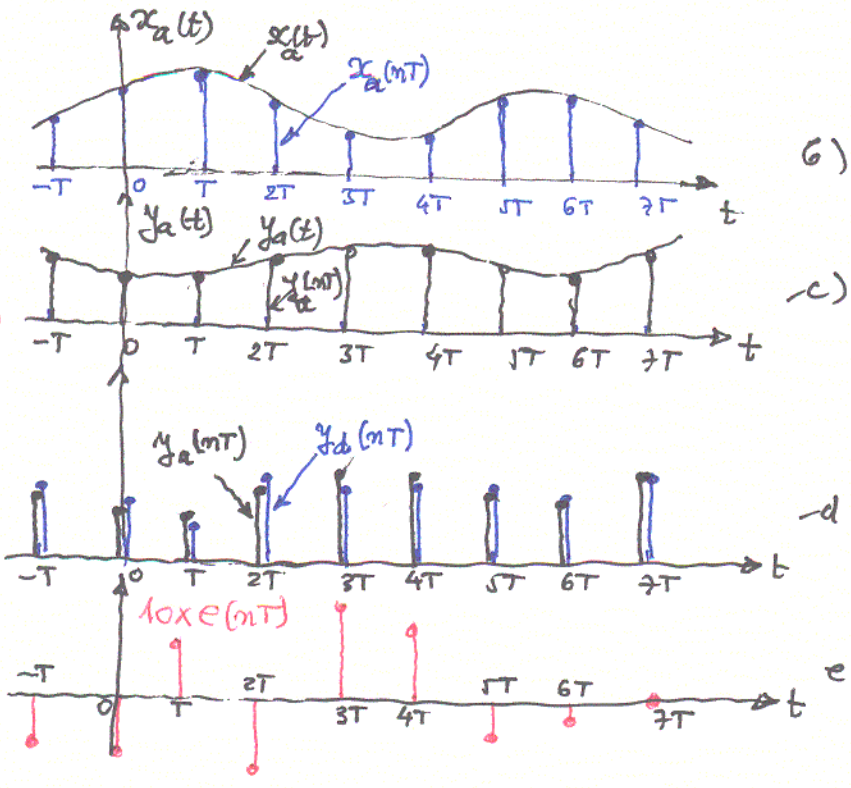 xₐ(t)
xₐ(t)
xₐ(nT)
б)
-T 0 T 2T 3T 4T 5T 6T 7T t
yₐ(t)
yₐ(t)
yₐ(nT)
-c)
-T 0 T 2T 3T 4T 5T 6T 7T t
yₐ(nT) y_d(nT)
-d
-T 0 T 2T 3T 4T 5T 6T 7T t
10xe(nT)
e
-T 0 T 2T 3T 4T 5T 6T 7T t